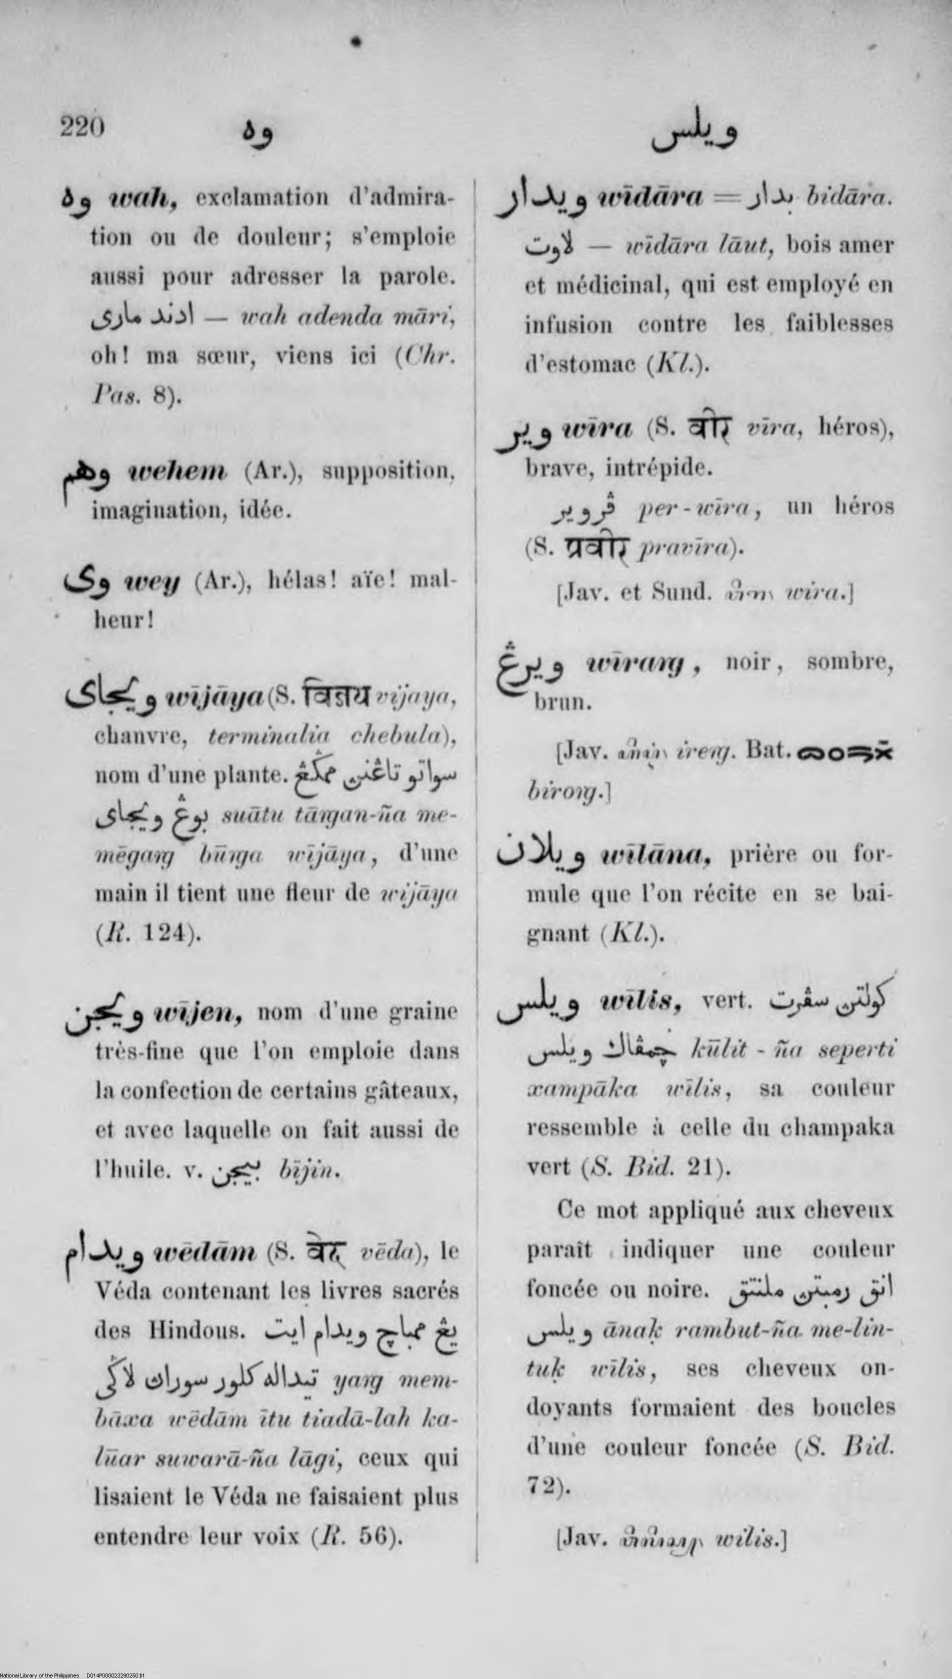 220
وه
ويلس
وه wah, exclamation d'admira-
tion ou de douleur; s'emploie
aussi pour adresser la parole.
ادند ماری — wah adenda māri,
oh! ma sœur, viens ici (Chr.
Pas. 8).
وهم wehem (Ar.), supposition,
imagination, idée.
وی wey (Ar.), hélas! aïe! mal-
heur!
ويجاى wījāya (S. विजय vijaya,
chanvre, terminalia chebula),
nom d'une plante. سواتو تاڠنن ممڬڠ
بوڠ ويجاى suātu tāngan-ña me-
mēgang būnga wījāya, d'une
main il tient une fleur de wijāya
(R. 124).
ويجن wījen, nom d'une graine
très-fine que l'on emploie dans
la confection de certains gâteaux,
et avec laquelle on fait aussi de
l'huile. v. بيجن bījin.
ويدام wēdām (S. वेद vēda), le
Véda contenant les livres sacrés
des Hindous. يڠ ممباچ ويدام ايت
تيداله كلور سوران لاڬی yang mem-
bāxa wēdām ītu tiadā-lah ka-
lūar suwarā-ña lāgi, ceux qui
lisaient le Véda ne faisaient plus
entendre leur voix (R. 56).
ويدار wīdāra = بدار bidāra.
لاوت — wīdāra lāut, bois amer
et médicinal, qui est employé en
infusion contre les faiblesses
d'estomac (Kl.).
وير wīra (S. वीर vīra, héros),
brave, intrépide.
ڤروير per-wīra, un héros
(S. प्रवीर pravīra).
[Jav. et Sund. wira.]
ويرڠ wīrang, noir, sombre,
brun.
[Jav. ireng. Bat.
birong.]
ويلان wīlāna, prière ou for-
mule que l'on récite en se bai-
gnant (Kl.).
ويلس wīlis, vert. كولتن سڤرت
چمڤاك ويلس kūlit-ña seperti
xampāka wīlis, sa couleur
ressemble à celle du champaka
vert (S. Bid. 21).
Ce mot appliqué aux cheveux
paraît indiquer une couleur
foncée ou noire. انق رمبتن ملنتق
ويلس ānaḳ rambut-ña me-lin-
tuḳ wīlis, ses cheveux on-
doyants formaient des boucles
d'une couleur foncée (S. Bid.
72).
[Jav. wilis.]
National Library of the Philippines